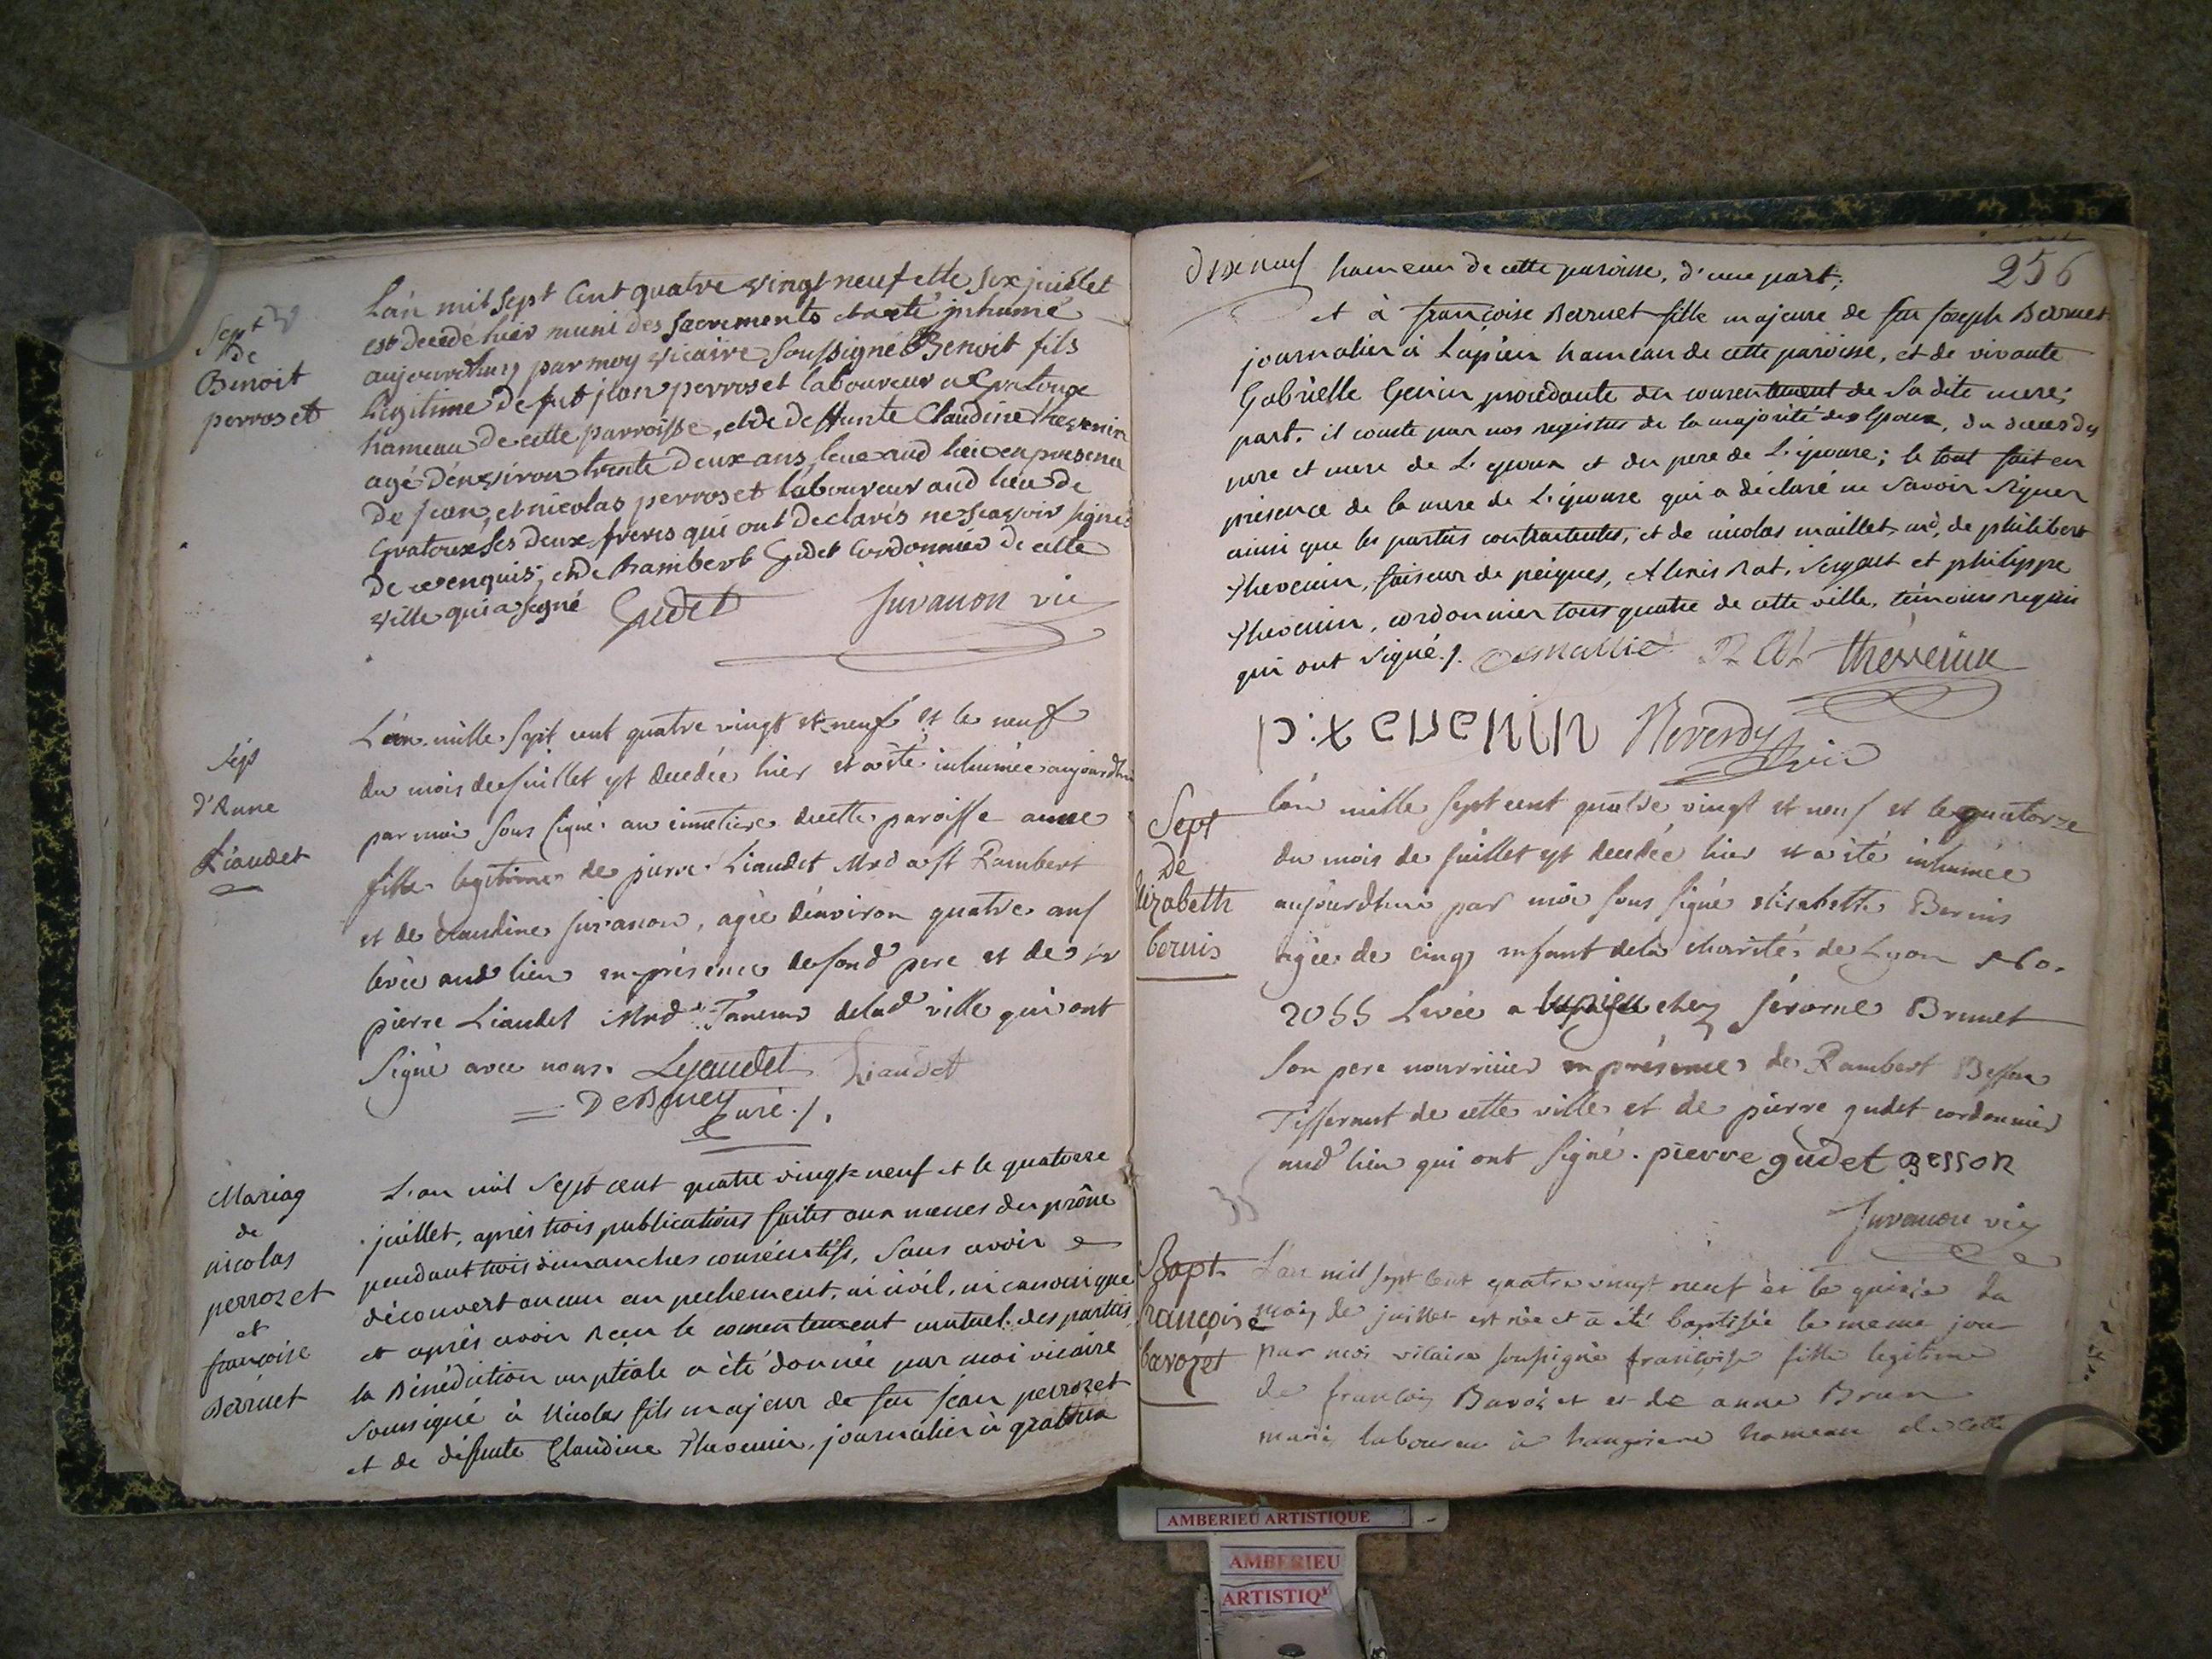 Sept
de
Benoit
perroset
L'an mil sept Cent quatre vingt neuf et le six juillet
est decedé hier muni des sacrements et a eté inhumé
aujourdhuy par moy vicaire soussigné Benoit fils
legitime de fut jean perroset laboureur a Gratoux
hameau de cette parroisse, et de deffunte Claudine thevenin
agé d'environ trente deux ans, leué aud lieu en presence
de jean, et nicolas perroset laboureur aud lieu de
Gratoux ses deux freres qui ont declarés ne scavoir signer
de ce enquis, et de Rambert Gudet Cordonnier de cette
ville qui a signé Gudet Juvanon vic
Sep
d'Anne
Liaudet
L'an mille sept cent quatre vingt et neuf et le neuf
du mois de juillet est decedée hier et a été inhumée aujourdhui
par moi sous signé au cimetiere de cette paroisse anne
fille legitime de pierre Liaudet Mrd a st Rambert
et de claudine juvanon, agée d'environ quatre ans
levée aud lieu en présence de sond pere et de sr
pierre Liaudet Mrd Taneur de lad ville qui ont
signé avec nous. Lyaudet Liaudet
Curé ./.
Mariag
de
nicolas
perrozet
et
françoise
Bernet
L'an mil sept cent quatre vingt-neuf et le quatorze
juillet, après trois publications faites aux messes du prône
pendant trois dimanches consécutifs, sans avoir
découvert aucun empechement, ni civil, ni canonique
et après avoir reçu le consentement mutuel des parties
la Bénédiction nuptiale a été donnée par moi vicaire
soussigné à Nicolas fils majeur de feu jean perrozet
et de défunte Claudine Thevenin, journalier à gratoux
256
hameau de cette paroisse, d'une part;
et à françoise Bernet fille majeure de feu joseph Bernet
journalier à Lupieu hameau de cette paroisse, et de vivante
Gabrielle Genin procédante du consentement de sa dite mere;
part. il conste par nos registres de la majorité des époux, du deces des
pere et mere de L'epoux et du pere de L'épouse; le tout fait en
présence de la mere de L'épouse qui a déclaré ne savoir signer
ainsi que les parties contractantes, et de nicolas maillet md, de philibert
Thevenin, faiseur de peignes, Alexis Rat, sergent et philippe
Thevenin, cordonnier tous quatre de cette ville, témoins requis
qui ont signé ./. Rat thevenin
Reverdy vic
Sept
De
Elizabeth
bernis
L'an mille sept cent quatre vingt et neuf et le quatorze
du mois de juillet est decedée hier et a été inhumée
aujourdhui par moi sous signé elisabeth Bernis
agée de cinq enfant de la charité de Lyon
2055 Levée a lupieu chez jérome Brunet
son pere nourricier en présence de Rambert Besson
Tisserant de cette ville et de pierre gudet cordonnier
aud lieu qui ont signé. pierre gudet BESSON
35
Juvanon vic
Bapt
françoise
bavozet
L'an mil sept cent quatre vingt neuf et le quinze du
mois de juillet est née et a été baptisée le meme jour
par moi vicaire soussigné françoise fille legitime
de françois Bavozet et de anne Brun
mariés laboureur à hameau de cette
AMBERIEU ARTISTIQUE
AMBERIEU
ARTISTIQ